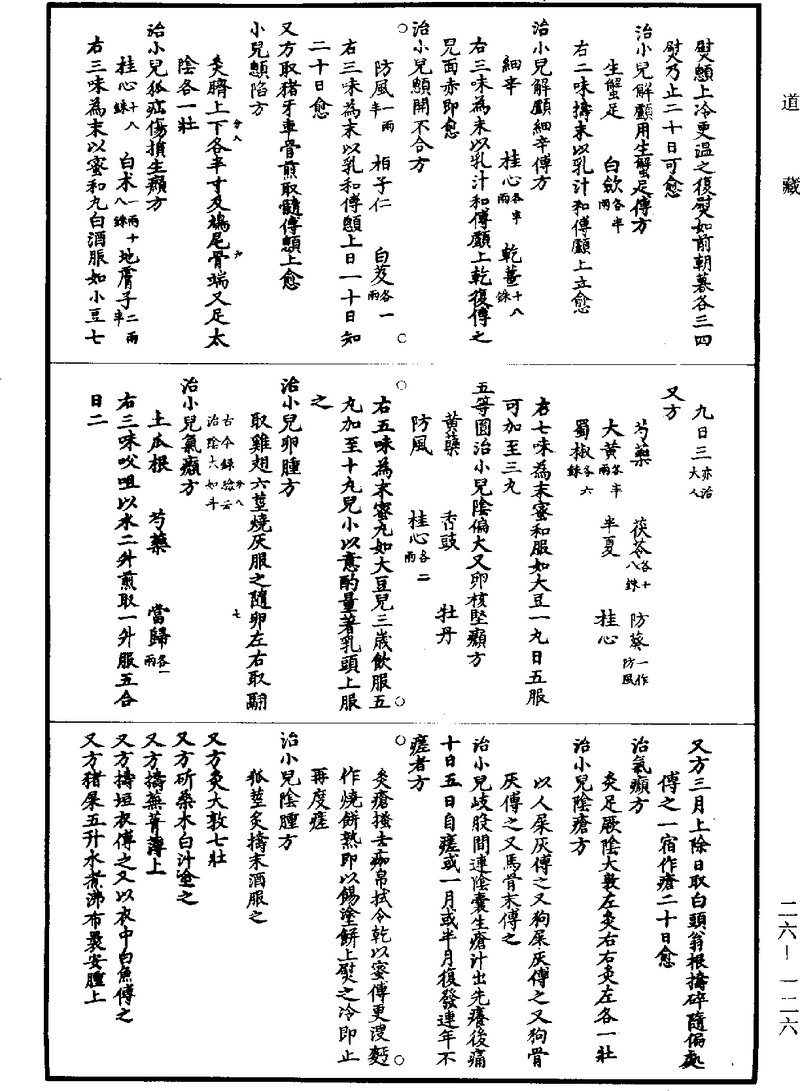 道藏
熨顖上冷更溫之復熨如前朝暮各三四
熨乃止二十日可愈
治小兒解顱用生蟹足傅方
生蟹足 白斂各半兩
右二味擣末以乳汁和傅顱上立愈
治小兒解顱細辛傅方
細辛 桂心各半兩 乾薑十八銖
右三味為末以乳汁和傅顱上乾復傅之
兒面赤即愈
治小兒顖開不合方
防風一兩半 柏子仁 白芨各一兩
右三味為末以乳和傅顖上日一十日知
二十日愈
又方取猪牙車骨煎取髓傅顖上愈
小兒顖陷方
灸臍上下各半寸及鳩尾骨端又足太
陰各一壯
治小兒狐疝傷損生㿗方
桂心十八銖 白朮一兩十八銖 地膚子二兩半
右三味為末以蜜和丸白酒服如小豆七
丸日三亦治大人
又方
芍藥 茯苓各十八銖 防葵一作防風
大黃各半兩 半夏 桂心
蜀椒各六銖
右七味為末蜜和服如大豆一丸日五服
可加至三丸
五等圓治小兒陰偏大又卵核堅㿗方
黃蘗 香豉 牡丹
防風 桂心各二兩
右五味為末蜜丸如大豆兒三歲飲服五
丸加至十丸兒小以意酌量著乳頭上服
之
治小兒卵腫方
取雞翅六莖燒灰服之隨卵左右取翮
古今錄驗云治陰大如斗
治小兒氣㿗方
土瓜根 芍藥 當歸各一兩
右三味㕮咀以水二升煎取一升服五合
日二
又方三月上除日取白頭翁根擣碎隨偏處
傅之一宿作瘡二十日愈
治氣㿗方
灸足厥陰大敦左灸右右灸左各一壯
治小兒陰瘡方
以人屎灰傅之又狗屎灰傅之又狗骨
灰傅之又馬骨末傅之
治小兒歧股間連陰囊生瘡汁出先癢後痛
十日五日自瘥或一月或半月復發連年不
瘥者方
灸瘡搔去痂帛拭令乾以蜜傅更溲麪
作燒餅熟即以餳塗餅上熨之冷即止
再度瘥
治小兒陰腫方
狐莖炙擣末酒服之
又方灸大敦七壯
又方斫桑木白汁塗之
又方擣蕪菁薄上
又方擣垣衣傅之又以衣中白魚傅之
又方猪屎五升水煮沸布裹安腫上
二六—一二六